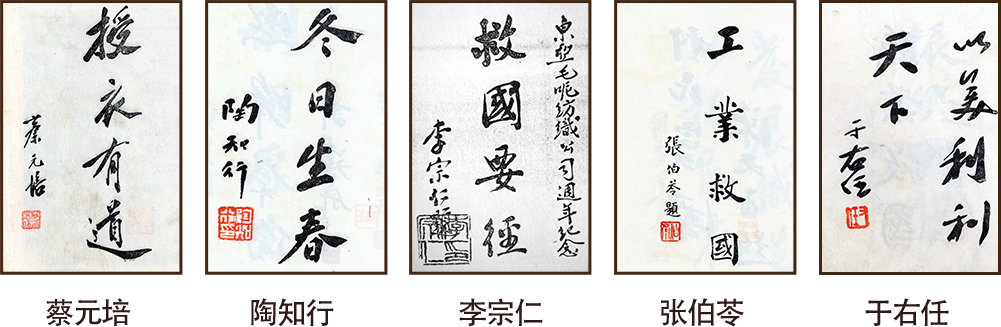 授衣有道
蔡元培
冬日生春
陶知行
東亞毛呢紡織公司週年紀念
救國要經
李宗仁題
工業救國
張伯苓題
以美利利
天下
于右任
蔡元培
陶知行
李宗仁
张伯苓
于右任